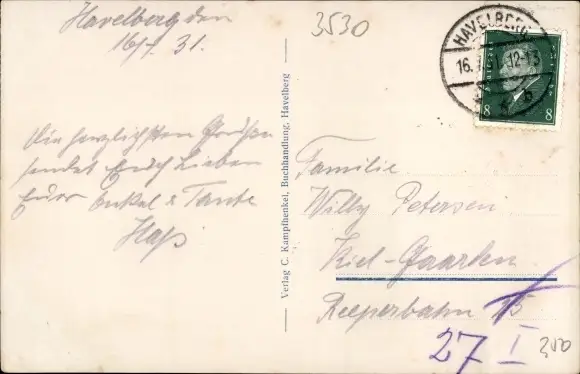 Havelberg den
16/7. 31.
3530
HAVELBERG
16. 7. 31. 12-13
b
8 8
Die herzlichsten Grüße
sendet Euch Lieben
Euer Onkel & Tante
Haß
Verlag C. Kampfhenkel, Buchhandlung, Havelberg
Familie
Willy Petersen
Kiel-Gaarden
Reeperbahn 15
27 I
350